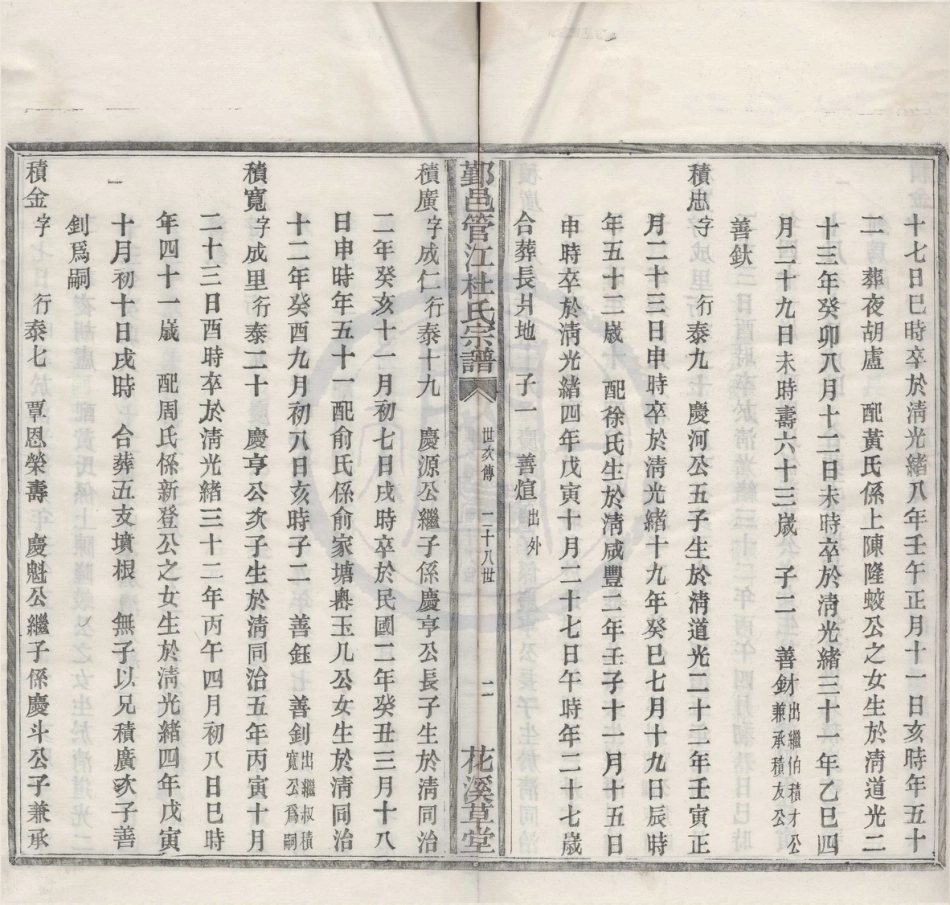 十七日巳時卒於清光緒八年壬午正月十一日亥時年五十
二　葬夜胡盧　配黃氏係上陳隆蛟公之女生於清道光二
十三年癸卯八月十二日未時卒於清光緒三十一年乙巳四
月二十九日未時壽六十三歲　子二　善釮出繼伯積才公兼承積友公
善釱
積忠字　行泰九　慶河公五子生於清道光二十二年壬寅正
月二十三日申時卒於清光緒十九年癸巳七月十九日辰時
年五十二歲　配徐氏生於清咸豐二年壬子十一月十五日
申時卒於清光緒四年戊寅十月二十七日午時年二十七歲
合葬長爿地　子一　善煊出外
鄞邑管江杜氏宗譜　世次傳　二十八世　二　花溪草堂
積廣字成仁行泰十九　慶源公繼子係慶亨公長子生於清同治
二年癸亥十一月初七日戌時卒於民國二年癸丑三月十八
日申時年五十一配俞氏係俞家塘嶴玉几公女生於清同治
十二年癸酉九月初八日亥時子二　善鈺　善釗出繼叔積寬公爲嗣
積寬字成里行泰二十　慶亨公次子生於清同治五年丙寅十月
二十三日酉時卒於清光緒三十二年丙午四月初八日巳時
年四十一歲　配周氏係新登公之女生於清光緒四年戊寅
十月初十日戌時　合葬五支墳根　無子以兄積廣次子善
釗爲嗣
積金字　行泰七　覃恩榮壽　慶魁公繼子係慶斗公子兼承